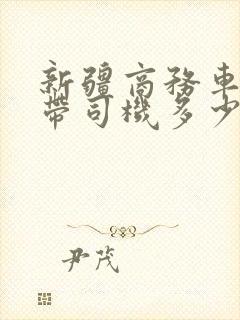 新疆商務車
帶司機多少
尹茂